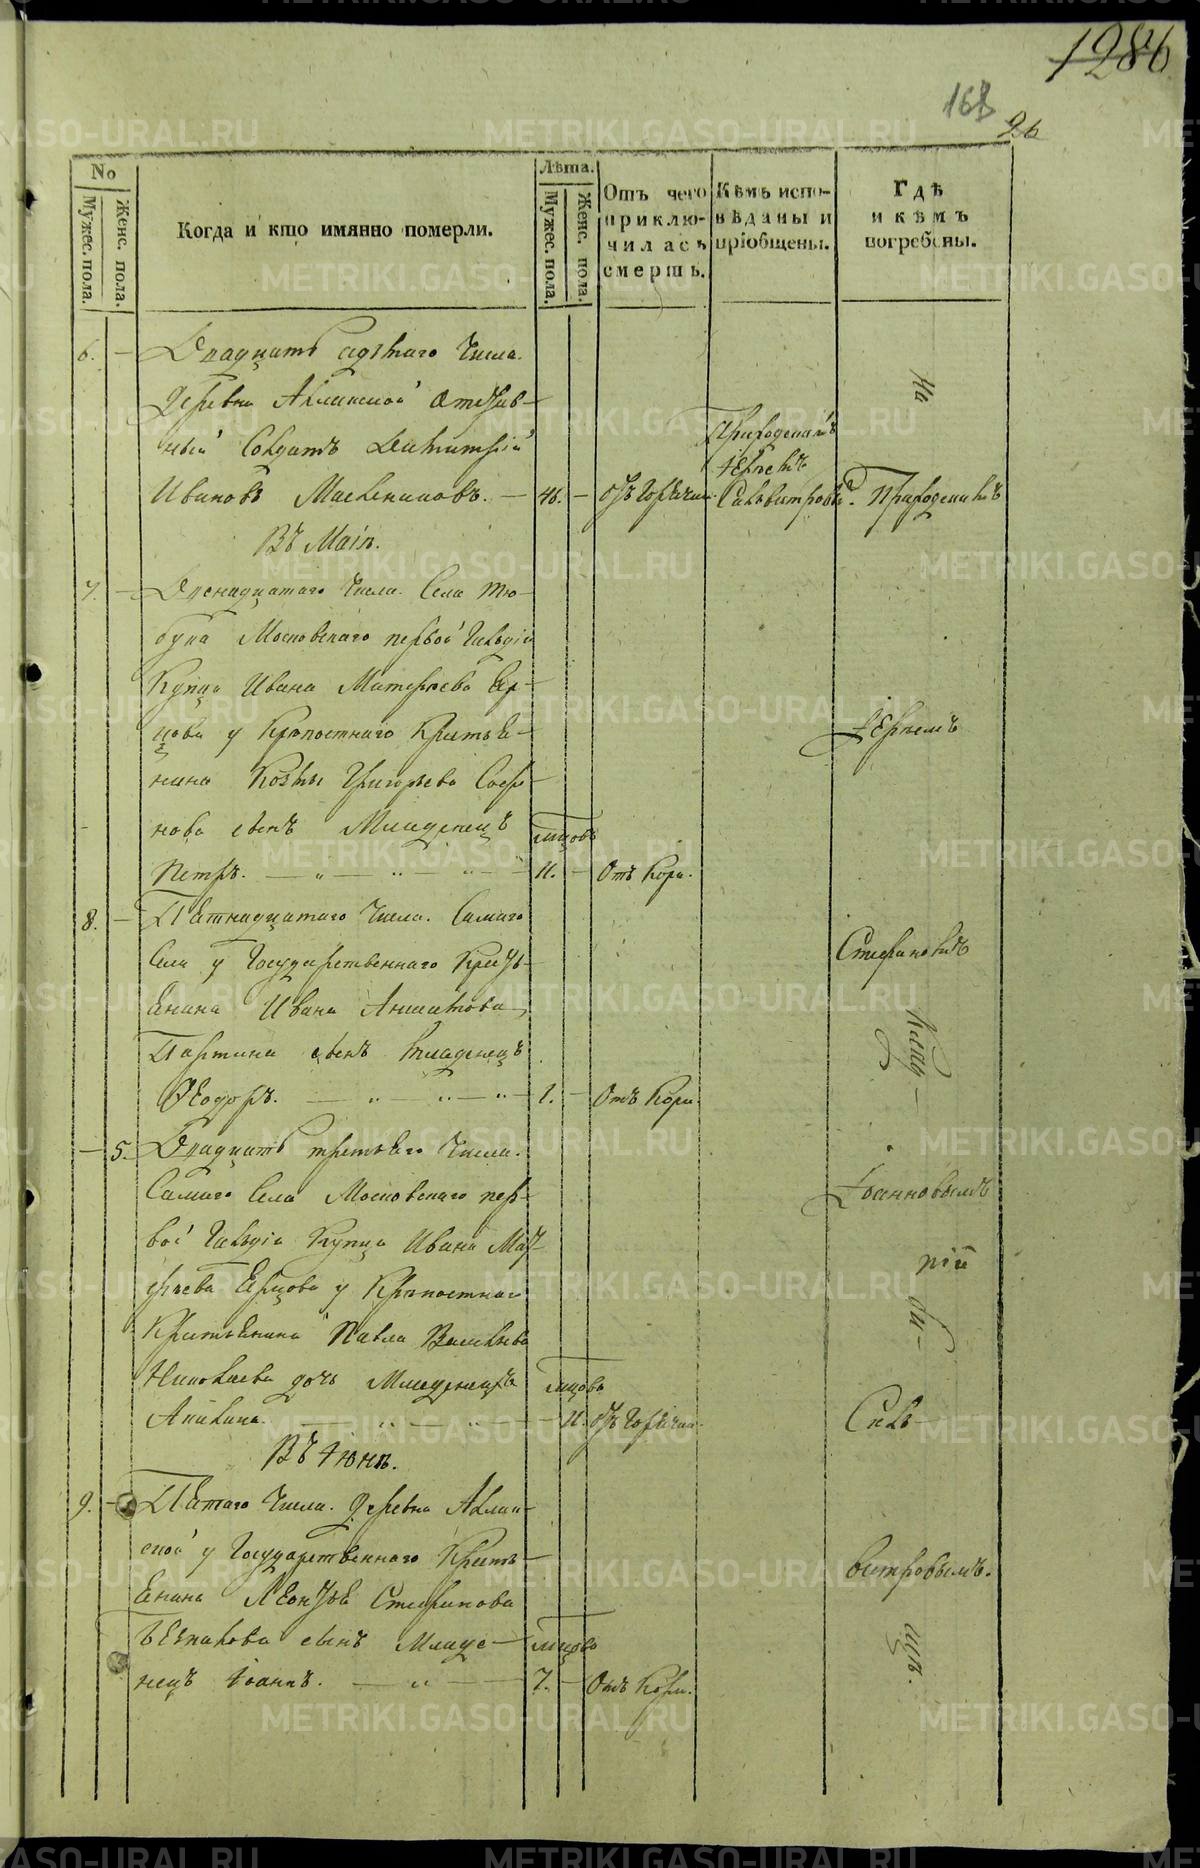 1286
168
96
No
Мужес. пола.
Женс. пола.
Когда и кто имянно померли.
Лѣта.
Мужес. пола.
Женс. пола.
Отъ чего
приклю-
чилась
смерть.
Кѣмъ испо-
вѣданы и
пріобщены.
Гдѣ
и кѣмъ
погребены.
6. — Двадцать седмаго числа.
Деревни Аклинской отстав-
ный Солдатъ Димитрій
Ивановъ Масленниковъ. — 46. — отъ горячки.
Приходскимъ
Іереемъ
Сильвестровы
На
Приходскимъ
Въ Маіѣ.
7. — Двенадцатаго числа. Села Тю-
бука Московскаго первой Гильдіи
Купца Ивана Матфеева Яр-
цова у Крѣпостнаго Крестья-
нина Козмы Григорьева Сафо-
нова сынъ Младенецъ мцовъ
Петръ. — „ — „ — „ — 11. — Отъ Кори.
Іереемъ
8. — Пятнадцатаго числа. Самаго
Села у Государственнаго Кресть-
янина Ивана
сынъ младенецъ
Ѳеодоръ. — „ — „ — „ — 1. — Отъ Кори.
Стефаномъ
Клад-
— 5. Двадцать третьяго числа.
Самаго Села Московскаго пер-
вой Гильдіи Купца Ивана Мат-
фѣева Ярцова у Крѣпостнаго
Крестьянина Павла Васильева
Николаева дочь Младенецъ мцовъ
Акилина. — „ — „ — 11. отъ горячки.
Іоанновымъ
Силь-
Въ Іюнѣ.
9. — Пятаго числа. Деревни Аклин-
ской у Государственнаго Кресть-
янина Леонтья Стефанова
сынъ Младе- мцовъ
нецъ Іоаннъ. — „ — 7. — Отъ Кори.
вестровымъ.
щѣ.